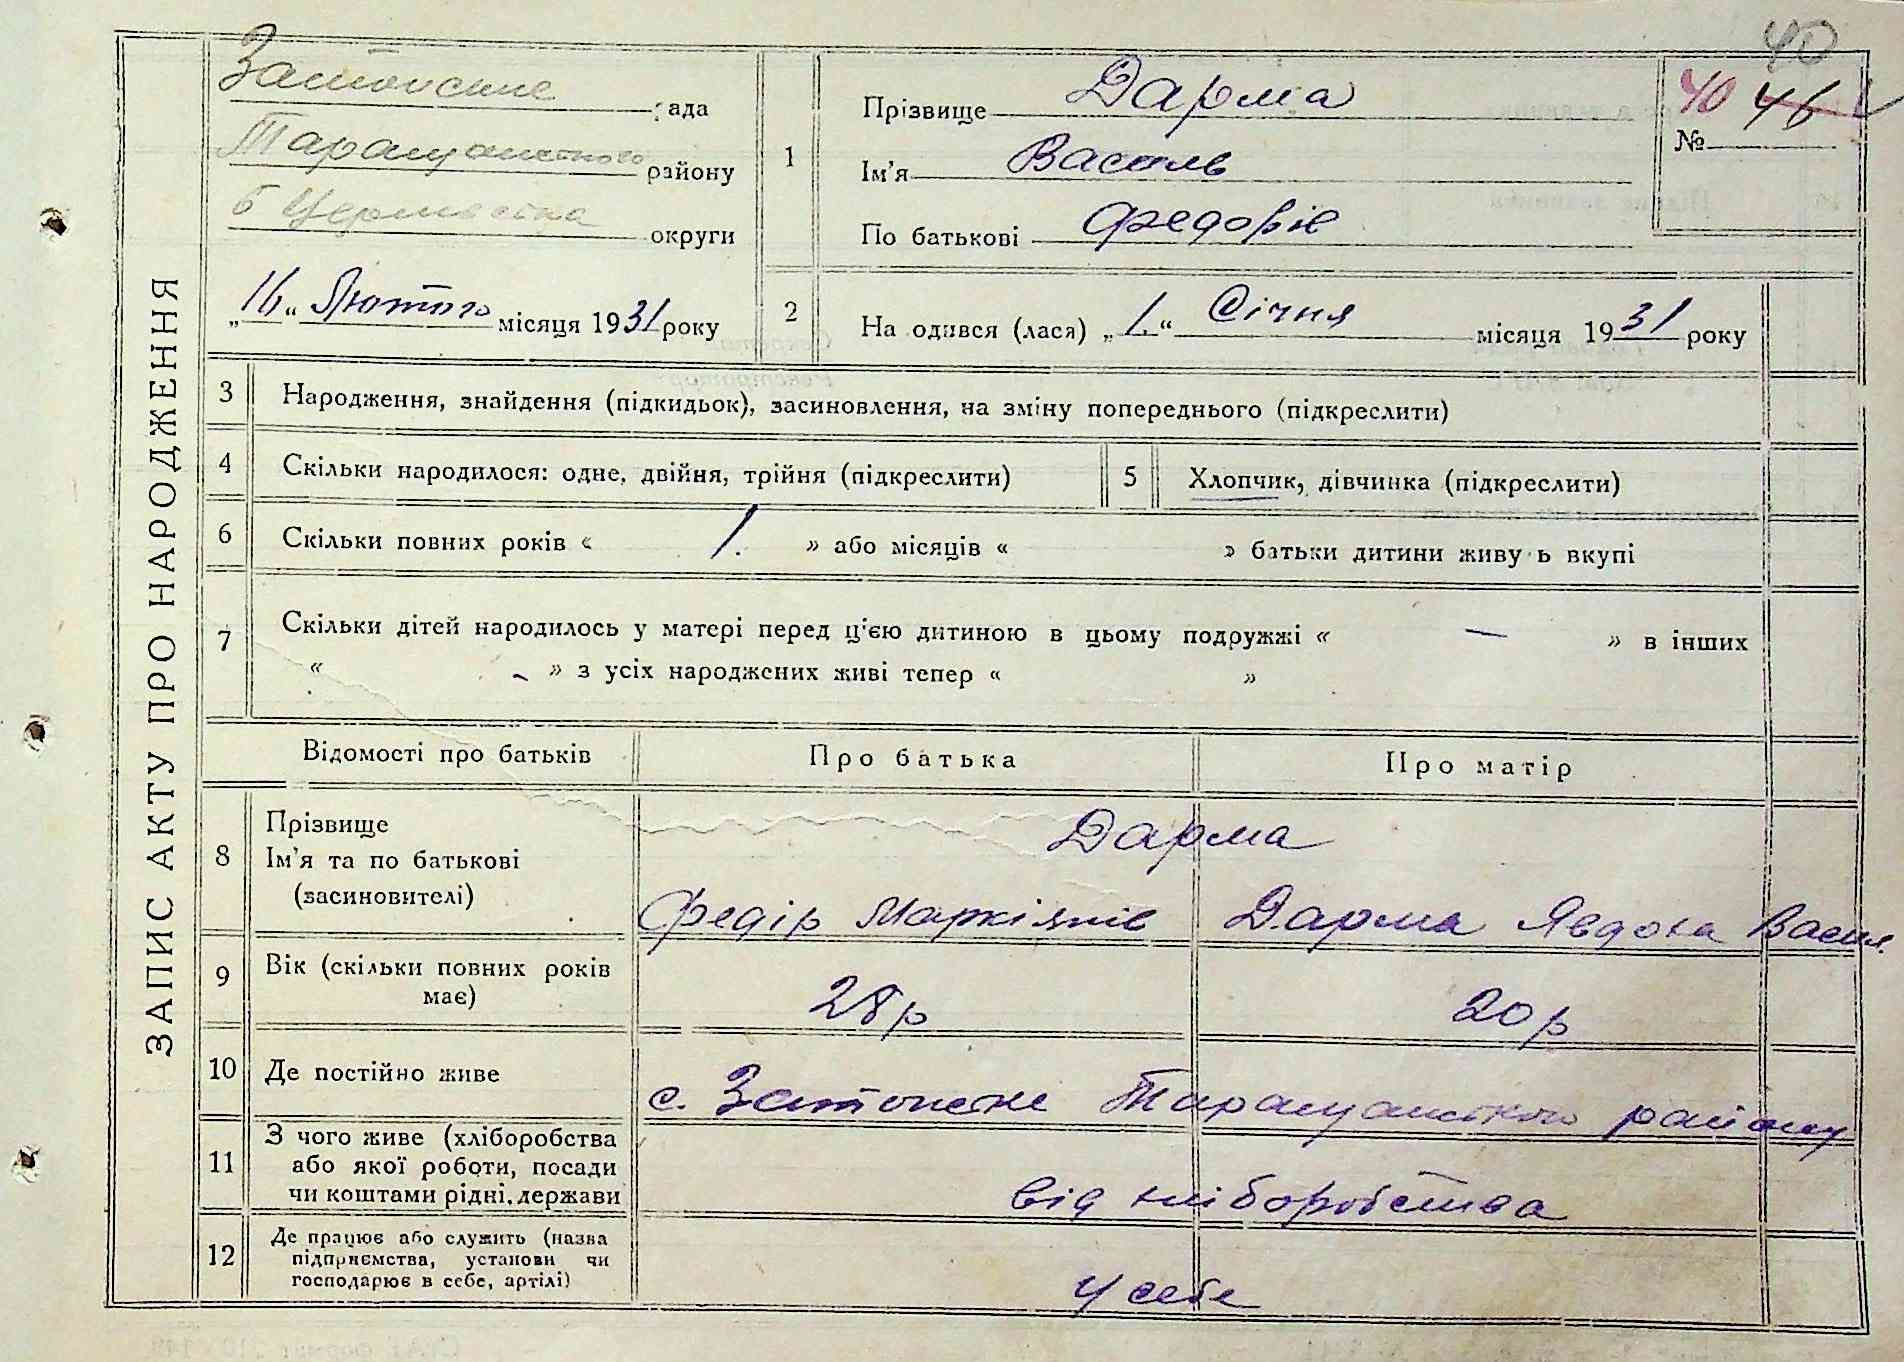 40
ЗАПИС АКТУ ПРО НАРОДЖЕННЯ
Затонське рада
Таращанского району
б Церківська округи
„16“ Лютого місяця 1931 року
1
Прізвище Дарма
Ім'я Василь
По батькові Федорів
40 46
№
2
На одився (лася) „1.“ Січня місяця 1931 року
3 Народження, знайдення (підкидьок), засиновлення, на зміну попереднього (підкреслити)
4 Скільки народилося: одне, двійня, трійня (підкреслити) 5 Хлопчик, дівчинка (підкреслити)
6 Скільки повних років « 1. » або місяців « » батьки дитини живу ь вкупі
7 Скільки дітей народилось у матері перед ц'єю дитиною в цьому подружжі « — » в інших
« - » з усіх народжених живі тепер « »
Відомості про батьків Про батька Про матір
8 Прізвище Дарма
Ім'я та по батькові
(засиновителі) Федір Маркіянів Дарма Явдоха Васил.
9 Вік (скільки повних років
має) 28р 20р
10 Де постійно живе с. Затонске Таращанського району
11 З чого живе (хліборобства
або якої роботи, посади
чи коштами рідні, держави від хліборобства
12 Де працює або служить (назва
підприємства, установи чи
господарює в себе, артілі) у себе